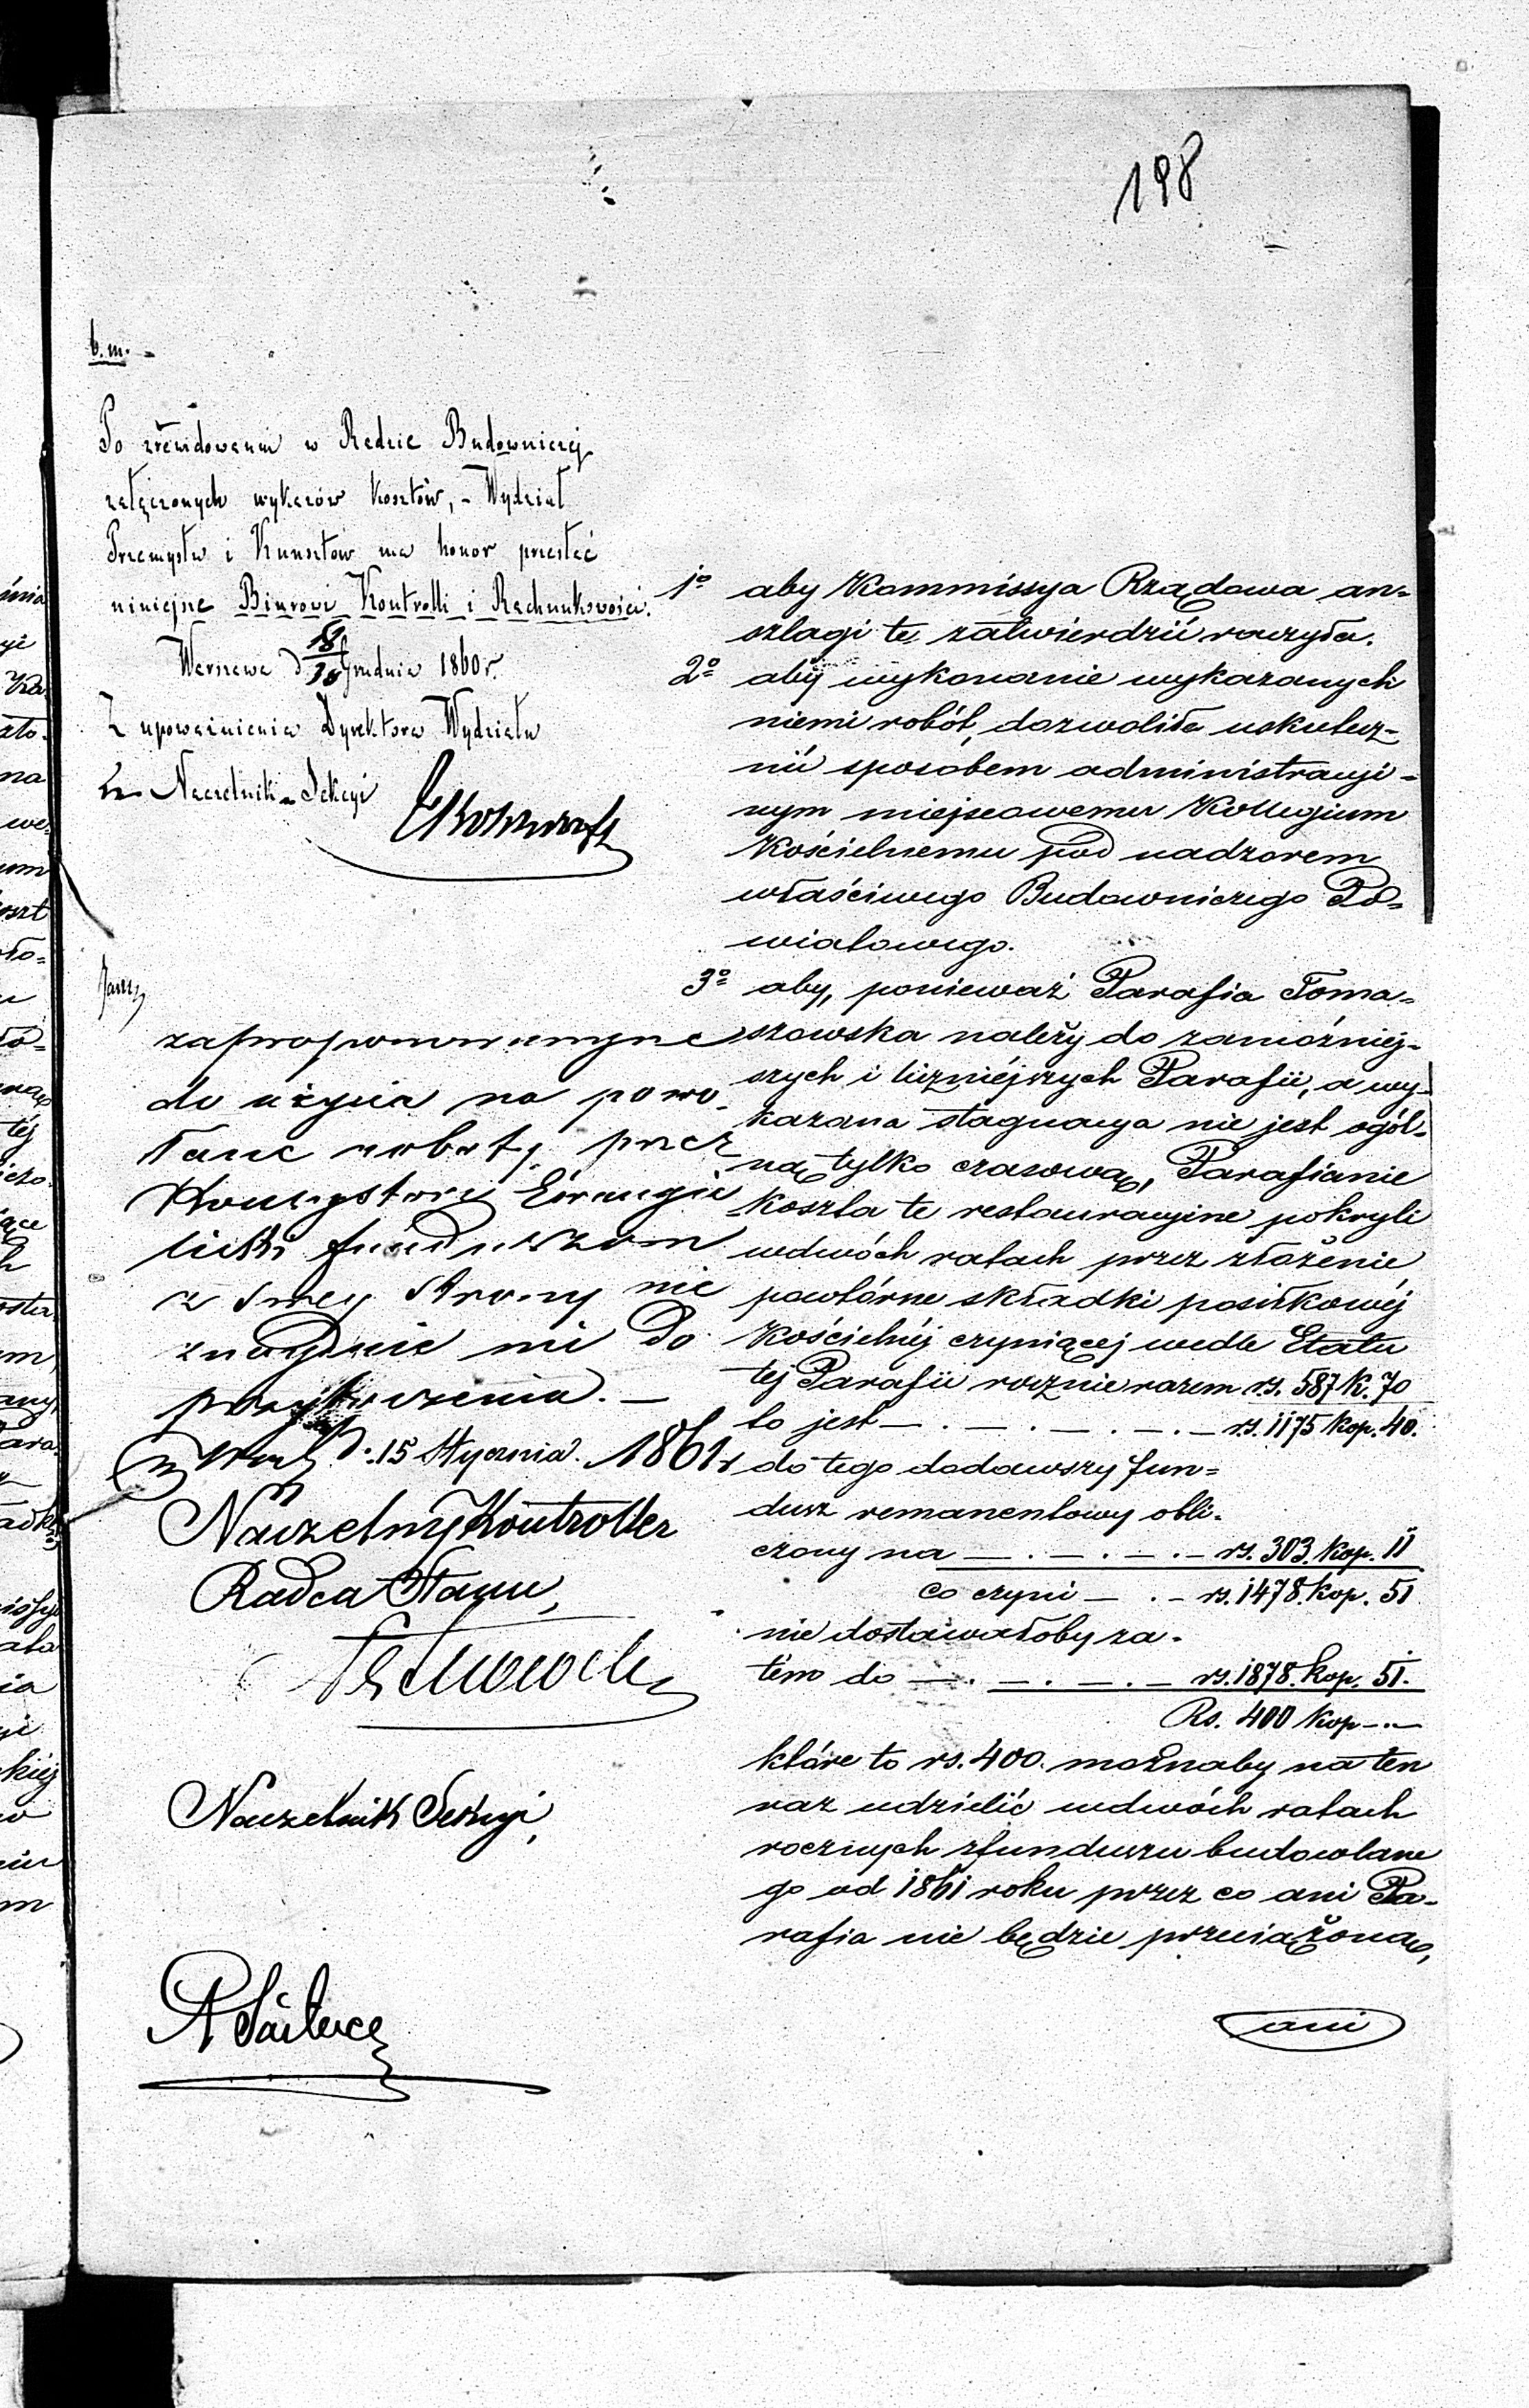 198
b.m.
Po zrewidowaniu w Radzie Budowniczej
załączonych wykazów kosztów, - Wydział
Przemysłu i Kunsztów ma honor przesłać
niniejsze Biurowi Kontrolli i Rachunkowości.
Warszawa d 18/30 Grudnia 1860 r.
Z upoważnienia Dyrektora Wydziału
Naczelnik Sekcyi
zaproponowanym
do użycia na powo-
łane roboty przez
Konsystorz Ewangie
licki funduszom
z swej strony nic
znajduje nic do
przytoczenia. —
d. 15 Stycznia. 1861 r
Naczelny Kontroller
Radca Stanu,
Naczelnik Sekcyi,
1º aby Kommissya Rządowa an-
szlagi te, zatwierdzić raczyła.
2º aby wykonanie wykazanych
niemi robót, dozwoliła uskutecz-
nić sposobem administracyi-
nym miejscowemu Kollegium
Kościelnemu pod nadzorem
właściwego Budowniczego Po-
wiatowego.
3º aby, ponieważ Parafia Toma-
szowska należy do zamożniej-
szych i liczniéjszych Parafii, a wy-
kazana stagnacya nie jest ogól-
ną tylko czasową, Parafianie
koszta te restauracyine pokryli
wdwóch ratach przez złożenie
powtórne składki posiłkowéj
Kościelnéj czyniącej wedle Etatu
tej Parafii rocznie razem rs. 587 K. 70
to jest — . — . — . — . — rs. 1175 kop. 40.
do tego dodawszy fun-
dusz remanentowy obli-
czony na — . — . — . — rs. 303. kop. 11
co czyni — . — rs. 1478. kop. 51
nie dostawałoby za-
tém do — . — . — . — rs. 1878. kop. 51.
Rs. 400 kop — . —
które to rs. 400. możnaby na ten
raz udzielić wdwóch ratach
rocznych zfunduszu budowlane
go od 1861 roku przez co ani Pa-
rafia nie będzie przeciążoną,
ani